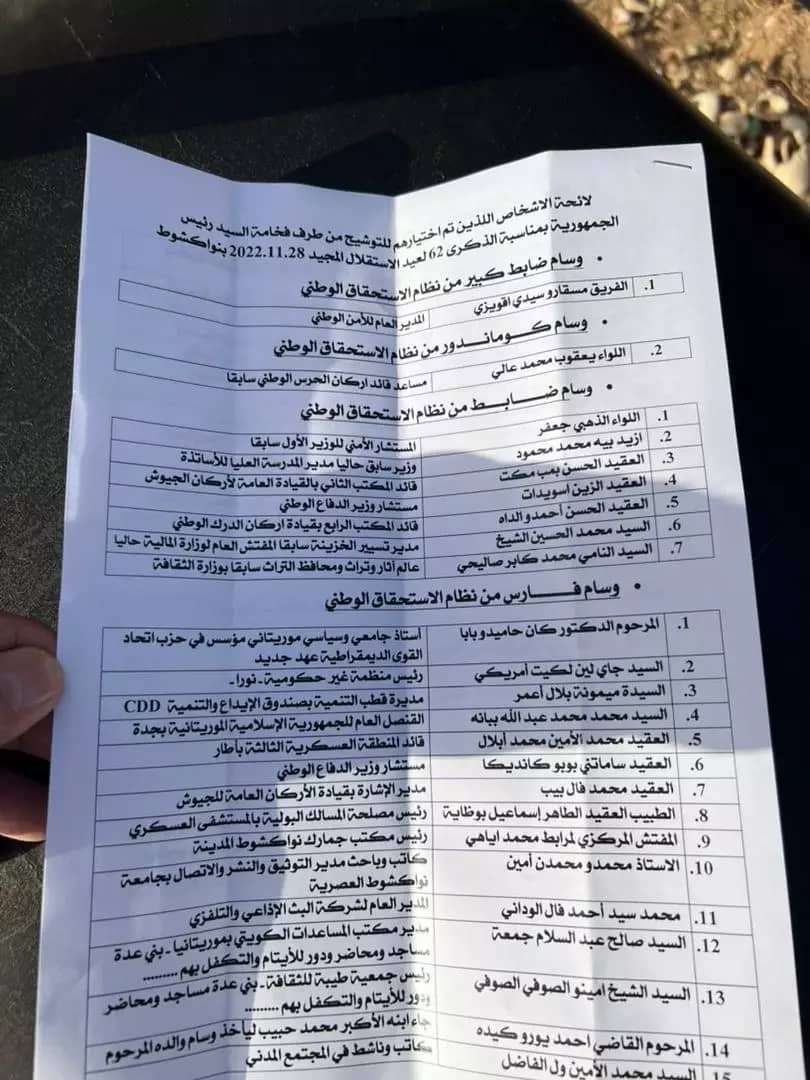 لائحة الاشخاص اللذين تم اختيارهم للتوشيح من طرف فخامة السيد رئيس
الجمهورية بمناسبة الذكرى 62 لعيد الاستقلال المجيد 2022.11.28 بنواكشوط
• وسام ضابط كبير من نظام الاستحقاق الوطني
1. الفريق مسقارو سيدي اقويزي المدير العام للأمن الوطني
• وسام كوماندور من نظام الاستحقاق الوطني
2. اللواء يعقوب محمد عالي مساعد قائد اركان الحرس الوطني سابقا
• وسام ضابط من نظام الاستحقاق الوطني
1. اللواء الذهبي جعفر المستشار الأمني للوزير الأول سابقا
2. ازيد بيه محمد محمود وزير سابق حاليا مدير المدرسة العليا للأساتذة
3. العقيد الحسن بمب مكت قائد المكتب الثاني بالقيادة العامة لأركان الجيوش
4. العقيد الزين اسويدات مستشار وزير الدفاع الوطني
5. العقيد الحسن أحمدو الداه قائد المكتب الرابع بقيادة اركان الدرك الوطني
6. السيد محمد الحسين الشيخ مدير تسيير الخزينة سابقا المفتش العام لوزارة المالية حاليا
7. السيد النامي محمد كابر صاليحي عالم آثار وتراث ومحافظ التراث سابقا بوزارة الثقافة
• وسام فارس من نظام الاستحقاق الوطني
1. المرحوم الدكتور كان حاميدو بابا أستاذ جامعي وسياسي موريتاني مؤسس في حزب اتحاد
القوى الديمقراطية عهد جديد
2. السيد جاي لين لكيت أمريكي رئيس منظمة غير حكومية - نورا-
3. السيدة ميمونة بلال أعمر مديرة قطب التنمية بصندوق الإيداع والتنمية CDD
4. السيد محمد محمد عبد الله ببانه القنصل العام للجمهورية الإسلامية الموريتانية بجدة
5. العقيد محمد الأمين محمد أبلال قائد المنطقة العسكرية الثالثة بأطار
6. العقيد ساماتني بوبو كانديكا مستشار وزير الدفاع الوطني
7. العقيد محمد فال بيب مدير الإشارة بقيادة الأركان العامة للجيوش
8. الطبيب العقيد الطاهر إسماعيل بوظاية رئيس مصلحة المسالك البولية بالمستشفى العسكري
9. المفتش المركزي لمرابط محمد اياهي رئيس مكتب جمارك نواكشوط المدينة
10. الاستاذ محمدو محمدن أمين كاتب وباحث مدير التوثيق والنشر والاتصال بجامعة
نواكشوط العصرية
11. محمد سيد أحمد فال الوداني المدير العام لشركة البث الإذاعي والتلفزي
12. السيد صالح عبد السلام جمعة مدير مكتب المساعدات الكويتي بموريتانيا - بني عدة
مساجد ومحاضر ودور للأيتام والتكفل بهم .........
13. السيد الشيخ امينو الصوفي الصوفي رئيس جمعية طيبة للثقافة - بني عدة مساجد ومحاضر
ودور للأيتام والتكفل بهم .........
14. المرحوم القاضي احمد يورو كيده جاء ابنه الأكبر محمد حبيب ليأخذ وسام والده المرحوم
15. السيد محمد الأمين ول الفاضل كاتب وناشط في المجتمع المدني